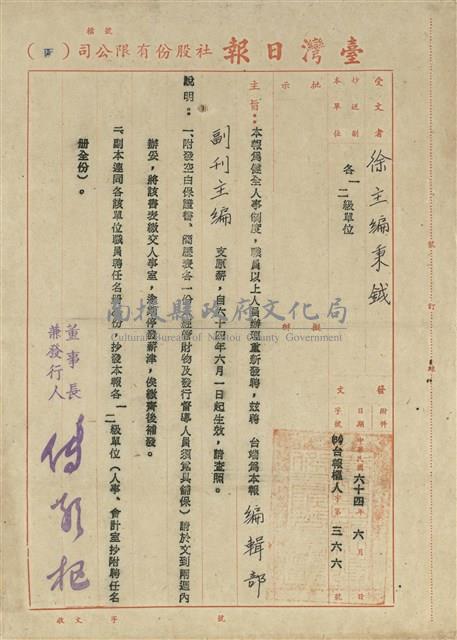 檔號
臺灣日報社股份有限公司( )
受文者
徐主編秉鉞
抄送副本單位
各一二級單位
批示
擬辦
發文
附件
日期 中華民國六十四年六月 日
字號 (64)台報樞人字第三六六號
主旨:本報為健全人事制度,職員以上人員辦理重新發聘,茲聘 台端為本報編輯部
副刊主編 支原薪,自六十四年六月一日起生效,請查照。
說明:一、附發空白保證書、簡歷表各一份(經管財物及發行督導人員須覓具舖保)請於文到兩週內
辦妥,將該書表繳交人事室,逾期停發薪津,俟繳齊後補發。
二、副本連同各該單位職員聘任名冊一份,抄發本報各一二級單位(人事、會計室抄附聘任名
冊全份)。
董事長
兼發行人
南投縣政府文化局
Cultural Bureau of Nantou County Government
號 訂 線
收文 字 號